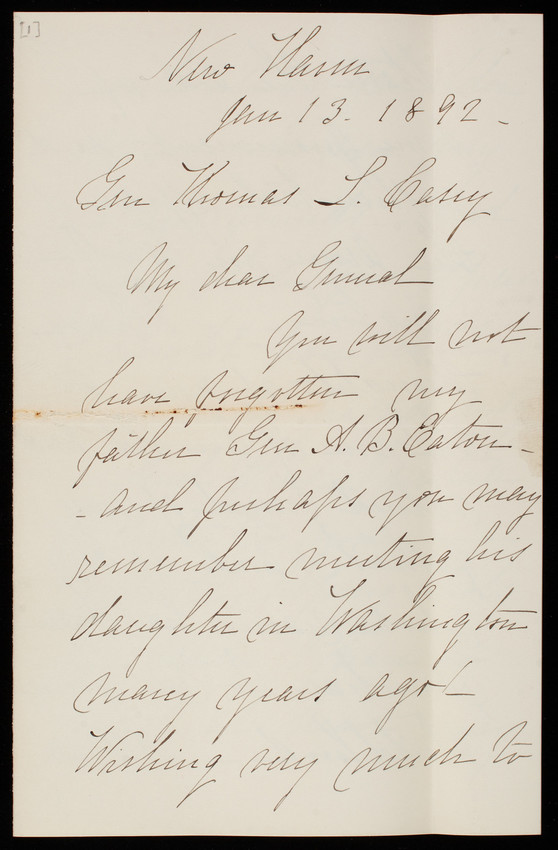 [1]
New Haven
Jan 13. 1892 -
Gen Thomas L. Casey
My dear General
You will not
have forgotten my
father Gen A. B. Eaton -
- and perhaps you may
remember meeting his
daughter in Washington
many years ago -
Wishing very much to